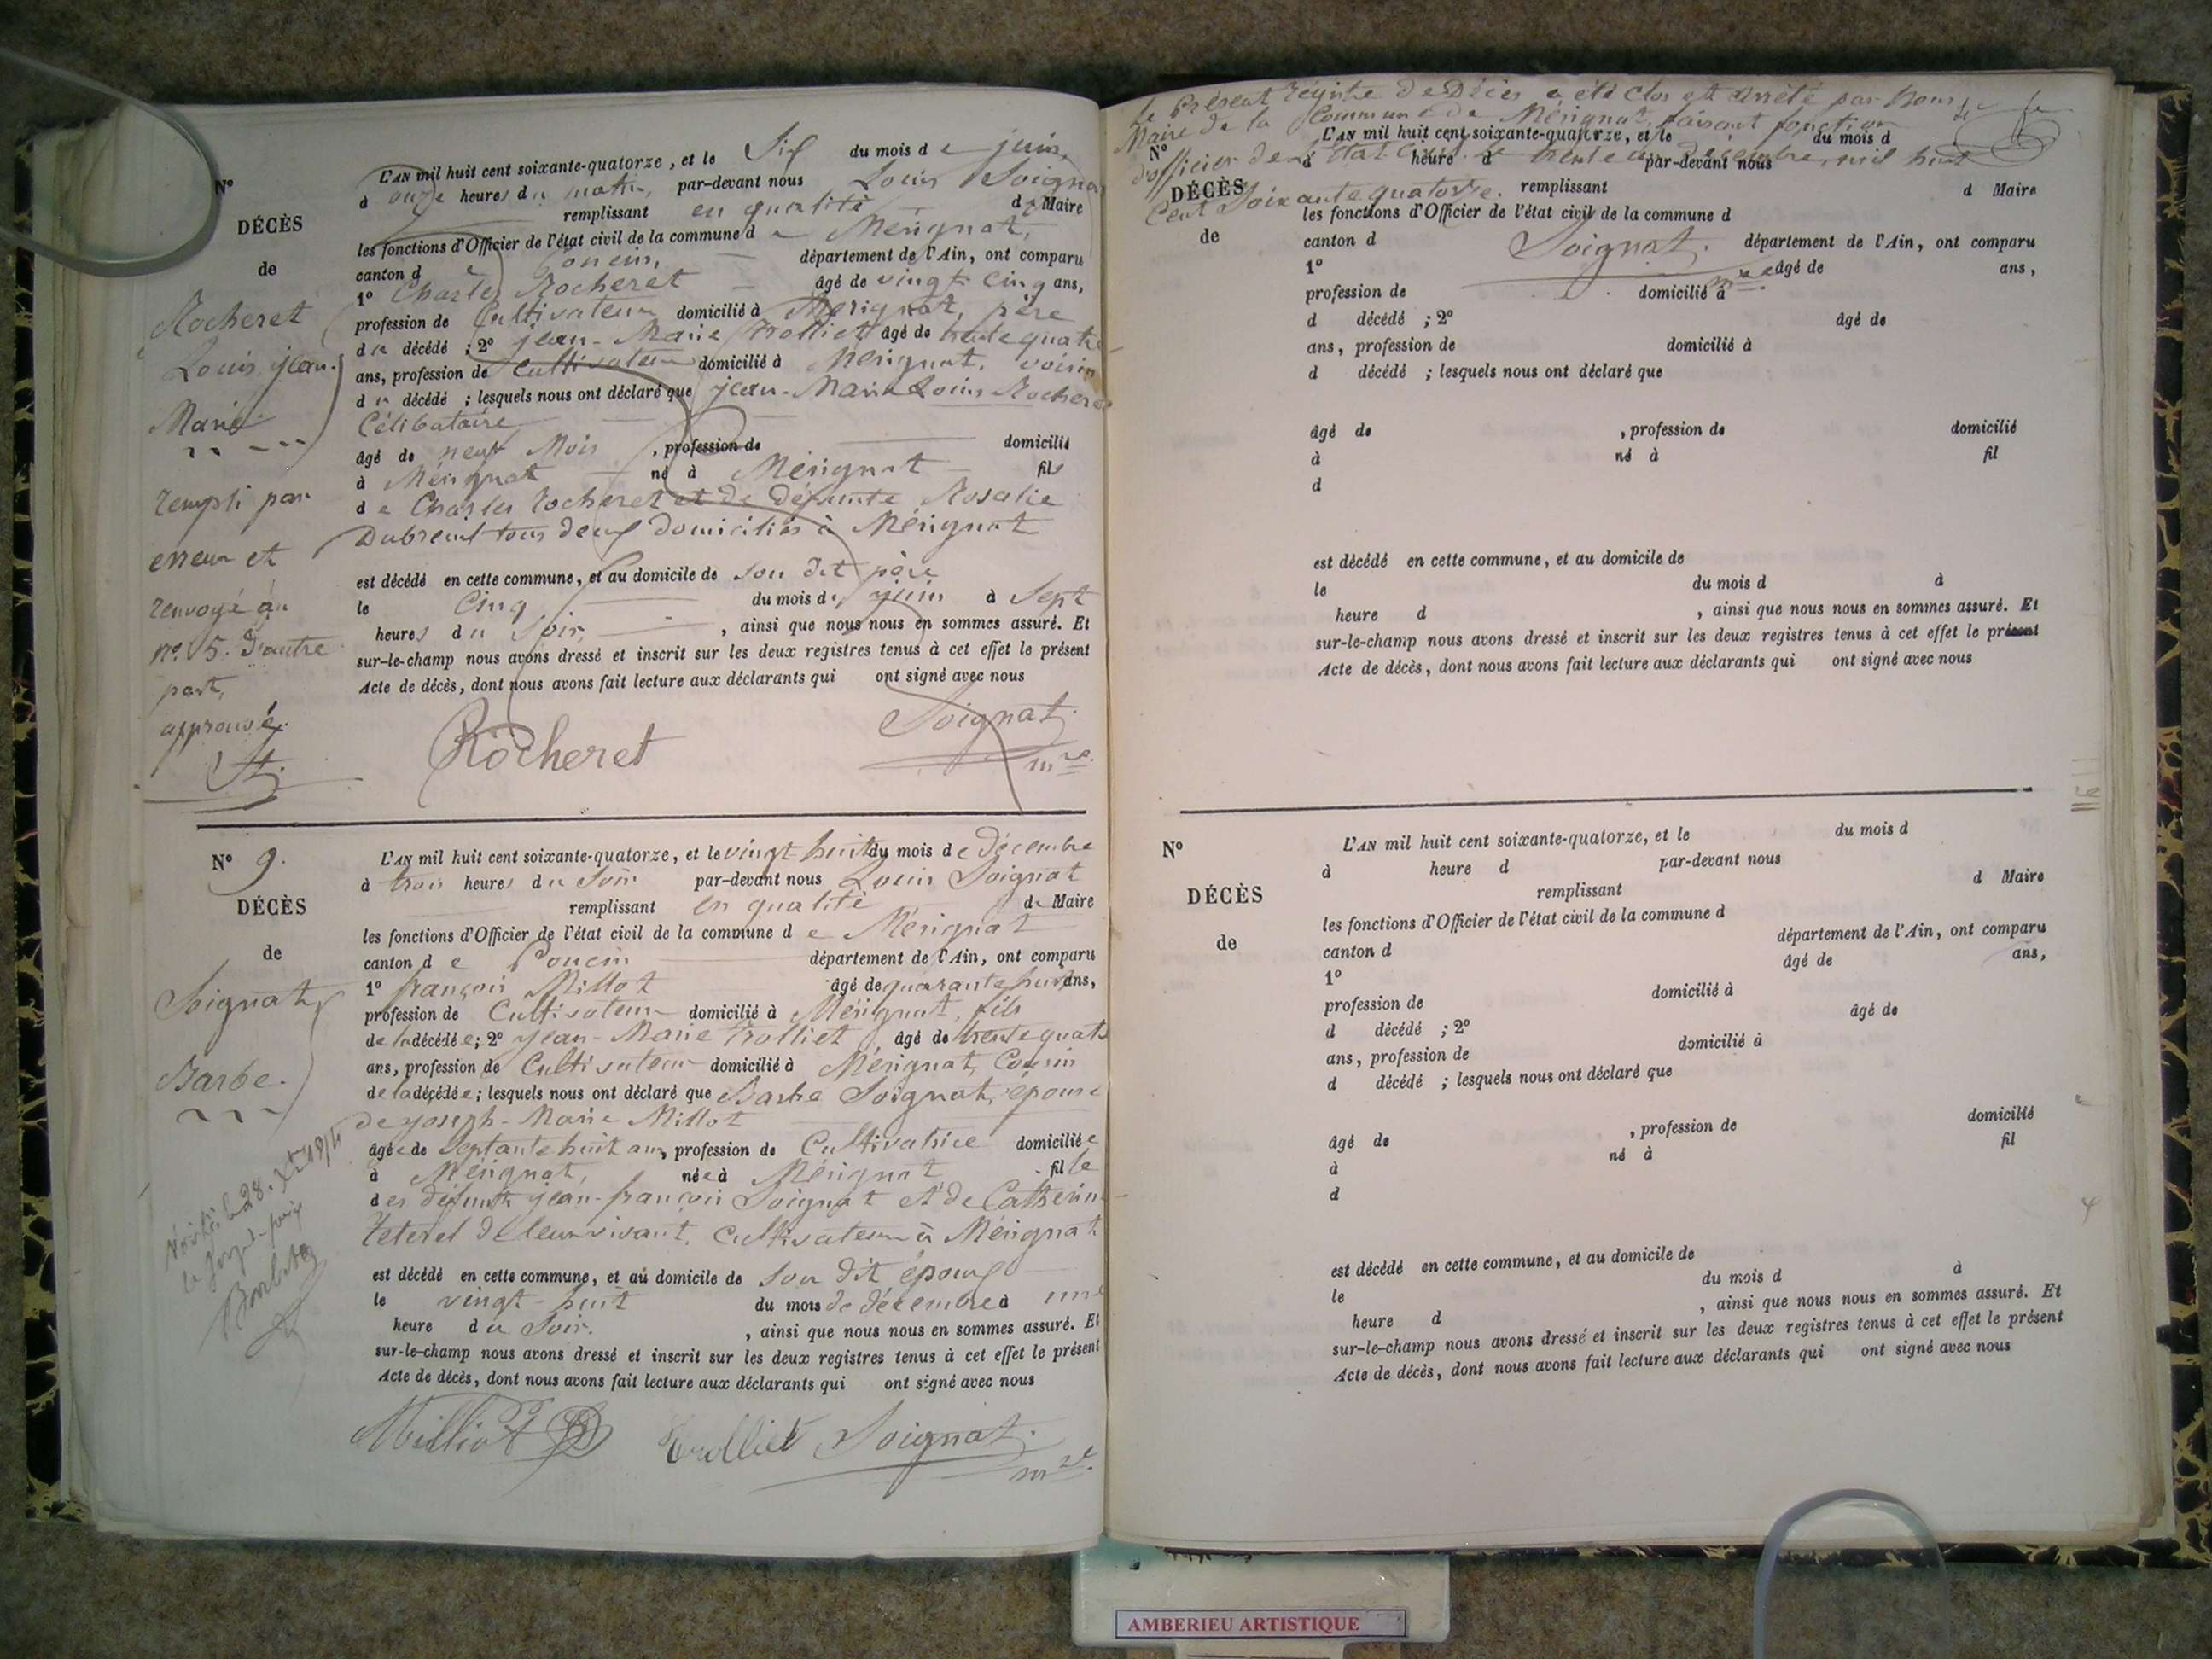 N°
DÉCÈS
de
Rocheret
Louis jean
Marie
rempli par
erreur et
renvoyé au
n° 5. d'autre
part,
approuvé.
L'AN mil huit cent soixante-quatorze, et le Six du mois de juin,
à onze heures du matin, par-devant nous Louis Soignat
remplissant en qualité de Maire
les fonctions d'Officier de l'état civil de la commune de Mérignat,
canton de Poncin, département de l'Ain, ont comparu
1° Charles Rocheret âgé de vingt cinq ans,
profession de Cultivateur domicilié à Mérignat, père
du décédé ; 2° jean-Marie Trolliet âgé de trente quatre
ans, profession de Cultivateur domicilié à Mérignat, voisin
du décédé ; lesquels nous ont déclaré que jean-Marie Louis Rocheret
Célibataire
âgé de neuf Mois, profession de domicilié
à Mérignat né à Mérignat fils
de Charles Rocheret et de défunte Rosalie
Dubreuil tous deux domiciliés à Mérignat
est décédé en cette commune, et au domicile de son dit père
le Cinq du mois de juin à Sept
heures du Soir, ainsi que nous nous en sommes assuré. Et
sur-le-champ nous avons dressé et inscrit sur les deux registres tenus à cet effet le présent
Acte de décès, dont nous avons fait lecture aux déclarants qui ont signé avec nous
Rocheret Soignat
mre
N° 9.
DÉCÈS
de
Soignat
Barbe.
L'AN mil huit cent soixante-quatorze, et le vingt huit du mois de Décembre
à trois heures du Soir par-devant nous Louis Soignat
remplissant en qualité de Maire
les fonctions d'Officier de l'état civil de la commune de Mérignat
canton de Poncin département de l'Ain, ont comparu
1° françois Millot âgé de quarante huit ans,
profession de Cultivateur domicilié à Mérignat, fils
de la décédée; 2° jean-Marie Trolliet âgé de trente quatre
ans, profession de Cultivateur domicilié à Mérignat, Cousin
de la décédée; lesquels nous ont déclaré que Barbe Soignat, épouse
de joseph-Marie Millot
âgée de Septante huit ans, profession de Cultivatrice domiciliée
à Mérignat, née à Mérignat fille
des défunts jean-françois Soignat et de Catherine
de leur vivant, Cultivateur à Mérignat
est décédé en cette commune, et au domicile de Son dit époux
le vingt-huit du mois de décembre à une
heure du Soir. , ainsi que nous nous en sommes assuré. Et
sur-le-champ nous avons dressé et inscrit sur les deux registres tenus à cet effet le présent
Acte de décès, dont nous avons fait lecture aux déclarants qui ont signé avec nous
Milliot Trolliet Soignat
mre
Le Présent Régistre de Décès a été Clos et arrêté par Nous
Maire de la Commune de Mérignat, faisant fonction
d'officier de l'État Civil le trente un décembre, mil huit
Cent Soixante quatorze.
Soignat
mre
N°
DÉCÈS
de
L'AN mil huit cent soixante-quatorze, et le du mois d
à heure d par-devant nous
remplissant d Maire
les fonctions d'Officier de l'état civil de la commune d
canton d département de l'Ain, ont comparu
1° âgé de ans,
profession de domicilié à
d décédé ; 2° âgé de
ans, profession de domicilié à
d décédé ; lesquels nous ont déclaré que
âgé de , profession de domicilié
à né à fil
d
est décédé en cette commune, et au domicile de
le du mois d à
heure d , ainsi que nous nous en sommes assuré. Et
sur-le-champ nous avons dressé et inscrit sur les deux registres tenus à cet effet le présent
Acte de décès, dont nous avons fait lecture aux déclarants qui ont signé avec nous
N°
DÉCÈS
de
L'AN mil huit cent soixante-quatorze, et le du mois d
à heure d par-devant nous
remplissant d Maire
les fonctions d'Officier de l'état civil de la commune d
canton d département de l'Ain, ont comparu
1° âgé de ans,
profession de domicilié à
d décédé ; 2° âgé de
ans, profession de domicilié à
d décédé ; lesquels nous ont déclaré que
âgé de , profession de domicilié
à né à fil
d
est décédé en cette commune, et au domicile de
le du mois d à
heure d , ainsi que nous nous en sommes assuré. Et
sur-le-champ nous avons dressé et inscrit sur les deux registres tenus à cet effet le présent
Acte de décès, dont nous avons fait lecture aux déclarants qui ont signé avec nous
AMBERIEU ARTISTIQUE